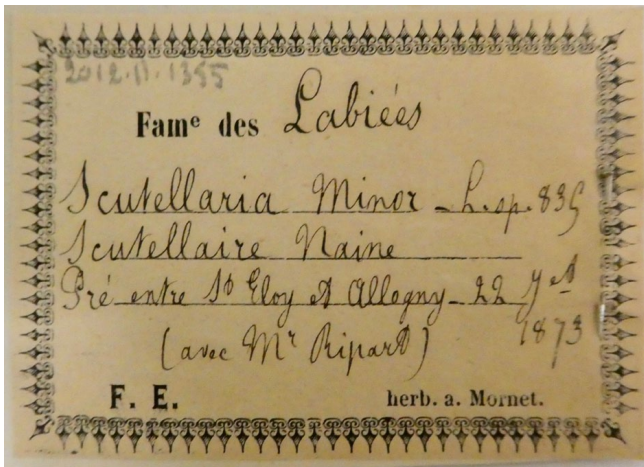 2012.11.1355
Fam^e des Labiées
Scutellaria Minor - L. sp. 835
Scutellaire Naine
Pré entre St Eloy et Allogny - 22 Jet
1873
(avec Mr Ripart)
F. E. herb. a. Mornet.